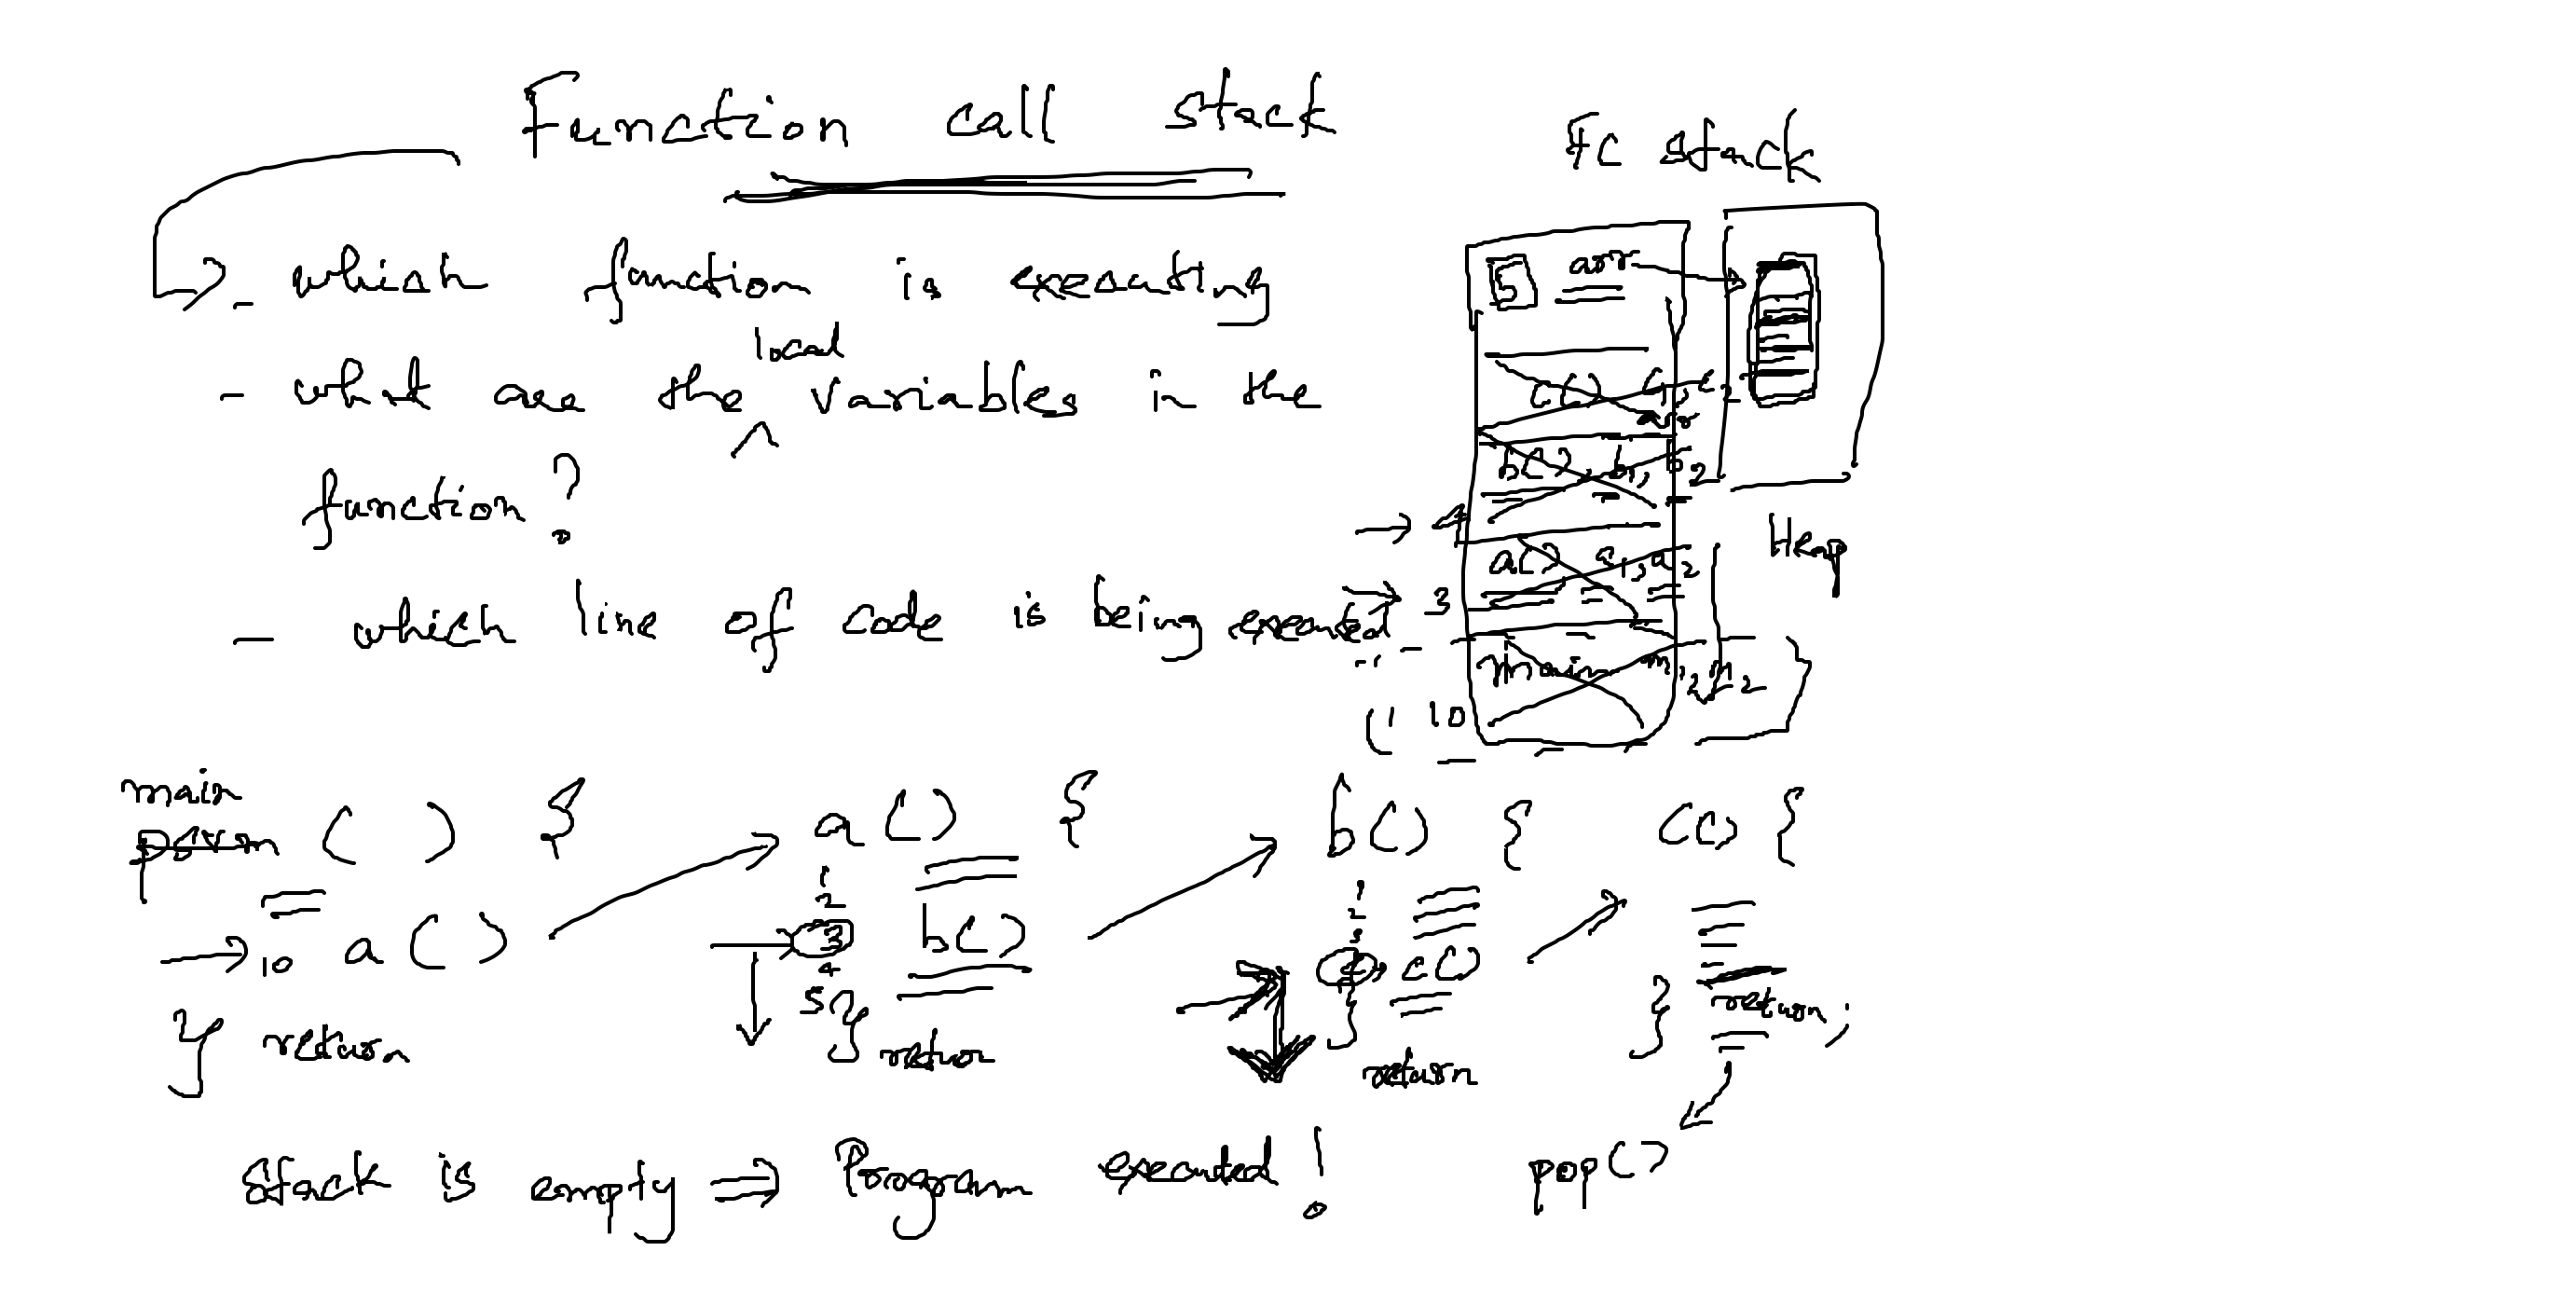 Function call stack
FC stack
- which function is executing
local
- what are the variables in the
function?
- which line of code is being executed
5 arr
c() c1, c2
arr
b() b1, b2
4
a() a1, a2
3
main m1, m2
10
Heap
main
() {
10 a()
} return
a() {
1
2
3 b()
4
5 }
return
b() {
1
2
3
4 c()
}
return
c() {
return;
}
pop()
Stack is empty => Program executed!